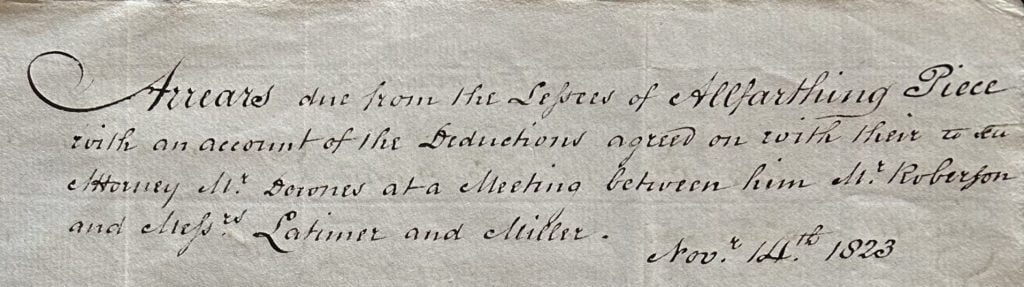 Arrears due from the Lessees of Allfarthing Piece
with an account of the Deductions agreed on with their
Attorney Mr. Downes at a Meeting between him Mr. Roberson
and Messrs. Latimer and Miller.
Novr. 14th. 1823